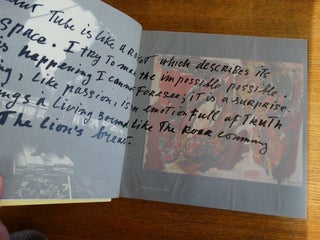 Tube is like a Rocket which describes its
space. I try to make the impossible possible.
is happening I cannot foresee; it is a surprise.
, like passion, is an emotion full of Truth
a Living sound like The Roar coming
The Lion's breast.